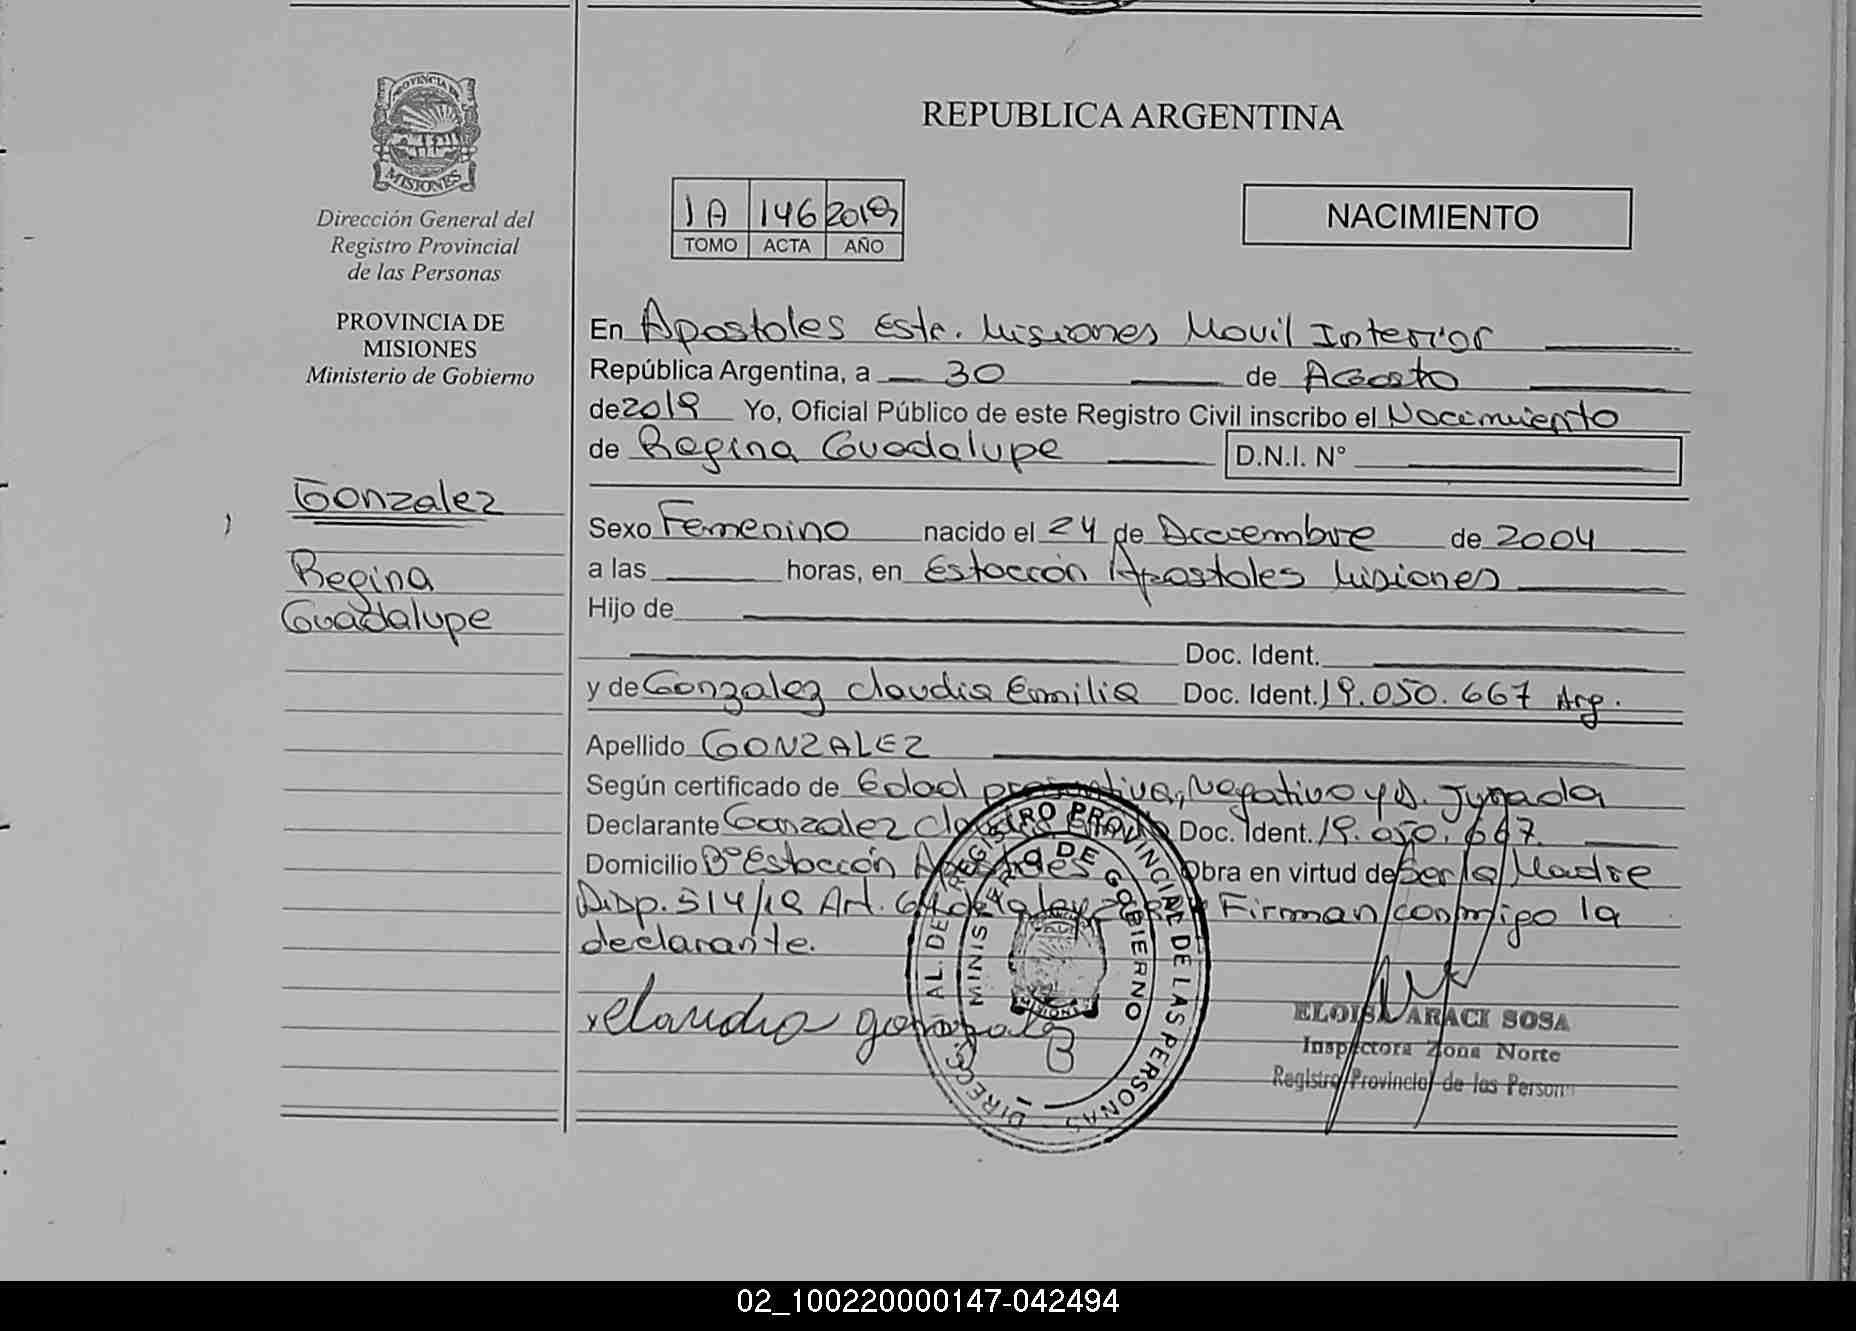 PROVINCIA DE
MISIONES
Dirección General del
Registro Provincial
de las Personas
PROVINCIA DE
MISIONES
Ministerio de Gobierno
Gonzalez
Regina
Guadalupe
REPUBLICA ARGENTINA
1A 146 2019
TOMO ACTA AÑO
NACIMIENTO
En Apostoles Este. Misiones Movil Interior
República Argentina, a 30 de Agosto
de 2019 Yo, Oficial Público de este Registro Civil inscribo el Nacimiento
de Regina Guadalupe D.N.I. N°
Sexo Femenino nacido el 24 de Diciembre de 2004
a las horas, en Estación Apostoles Misiones
Hijo de
Doc. Ident.
y de Gonzalez Claudia Emilia Doc. Ident. 19.050.667 Arg.
Apellido GONZALEZ
Según certificado de Edad presuntiva, Negativo y D. Jurada
Declarante Gonzalez Doc. Ident. 19.050.667.
Domicilio B° Estación Apostoles Obra en virtud de Ser la Madre
Disp. 514/19 Art. de la ley Firman conmigo la
declarante.
Claudia gonzalez
DIRECC. GRAL. DE REGISTRO PROVINCIAL DE LAS PERSONAS
MINISTERIO DE GOBIERNO
B
ELOISA ARACI SOSA
Inspectora Zona Norte
Registro Provincial de las Person
02_100220000147-042494